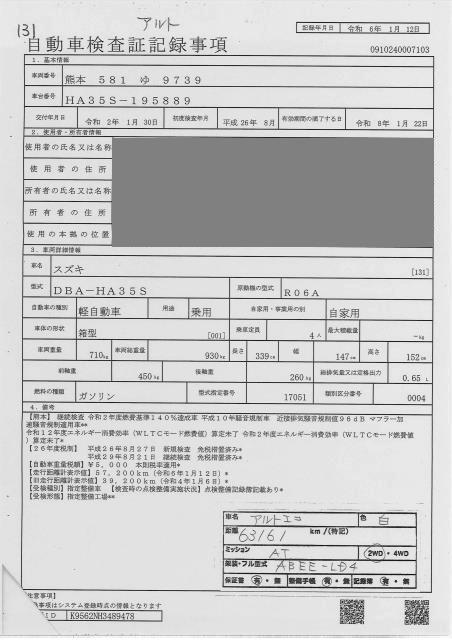 131
アルト
記録年月日 令和 6年 1月 12日
自動車検査証記録事項
0910240007103
1. 基本情報
車両番号 熊本 581 ゆ 9739
車台番号 HA35S-195889
交付年月日 令和 2年 1月 30日 初度検査年月 平成 26年 8月 有効期間の満了する日 令和 8年 1月 22日
2. 使用者・所有者情報
使用者の氏名又は名称
使用者の住所
所有者の氏名又は名称
所有者の住所
使用の本拠の位置
3. 車両詳細情報
車名 スズキ [131]
型式 DBA-HA35S 原動機の型式 R06A
自動車の種別 軽自動車 用途 乗用 自家用・事業用の別 自家用
車体の形状 箱型 [001] 乗車定員 4人 最大積載量 -kg
車両重量 710kg 車両総重量 930kg 長さ 339cm 幅 147cm 高さ 152cm
前軸重 450kg 後軸重 260kg 総排気量又は定格出力 0.65 L
燃料の種類 ガソリン 型式指定番号 17051 類別区分番号 0004
4. 備考
【熊本】 継続検査 令和2年度燃費基準140%達成車 平成10年騒音規制車 近接排気騒音規制値96dB マフラー加
速騒音規制適用車**
令和12年度エネルギー消費効率(WLTCモード燃費値)算定未了 令和2年度エネルギー消費効率(WLTCモード燃費値
)算定未了*
【26年度税制】 平成26年8月27日 新規検査 免税措置済み*
平成29年8月21日 継続検査 免税措置済み**
【自動車重量税額】¥5,000 本則税率適用*
【走行距離計表示値】57,200km(令和6年1月12日)*
【旧走行距離計表示値】39,200km(令和4年1月6日)*
【受検種別】指定整備車 【検査時の点検整備実施状況】点検整備記録簿記載あり*
【受検形態】指定整備工場**
車名 アルトエコ 色 白
距離 63161 km/(特記)
ミッション AT 2WD・4WD
架装・フル型式 ABEE-LD4
保証書 有・無 整備手帳 有・無 記録簿 有・無
注意事項】
事項はシステム登録時点の情報となります
ID K9562NH3489478